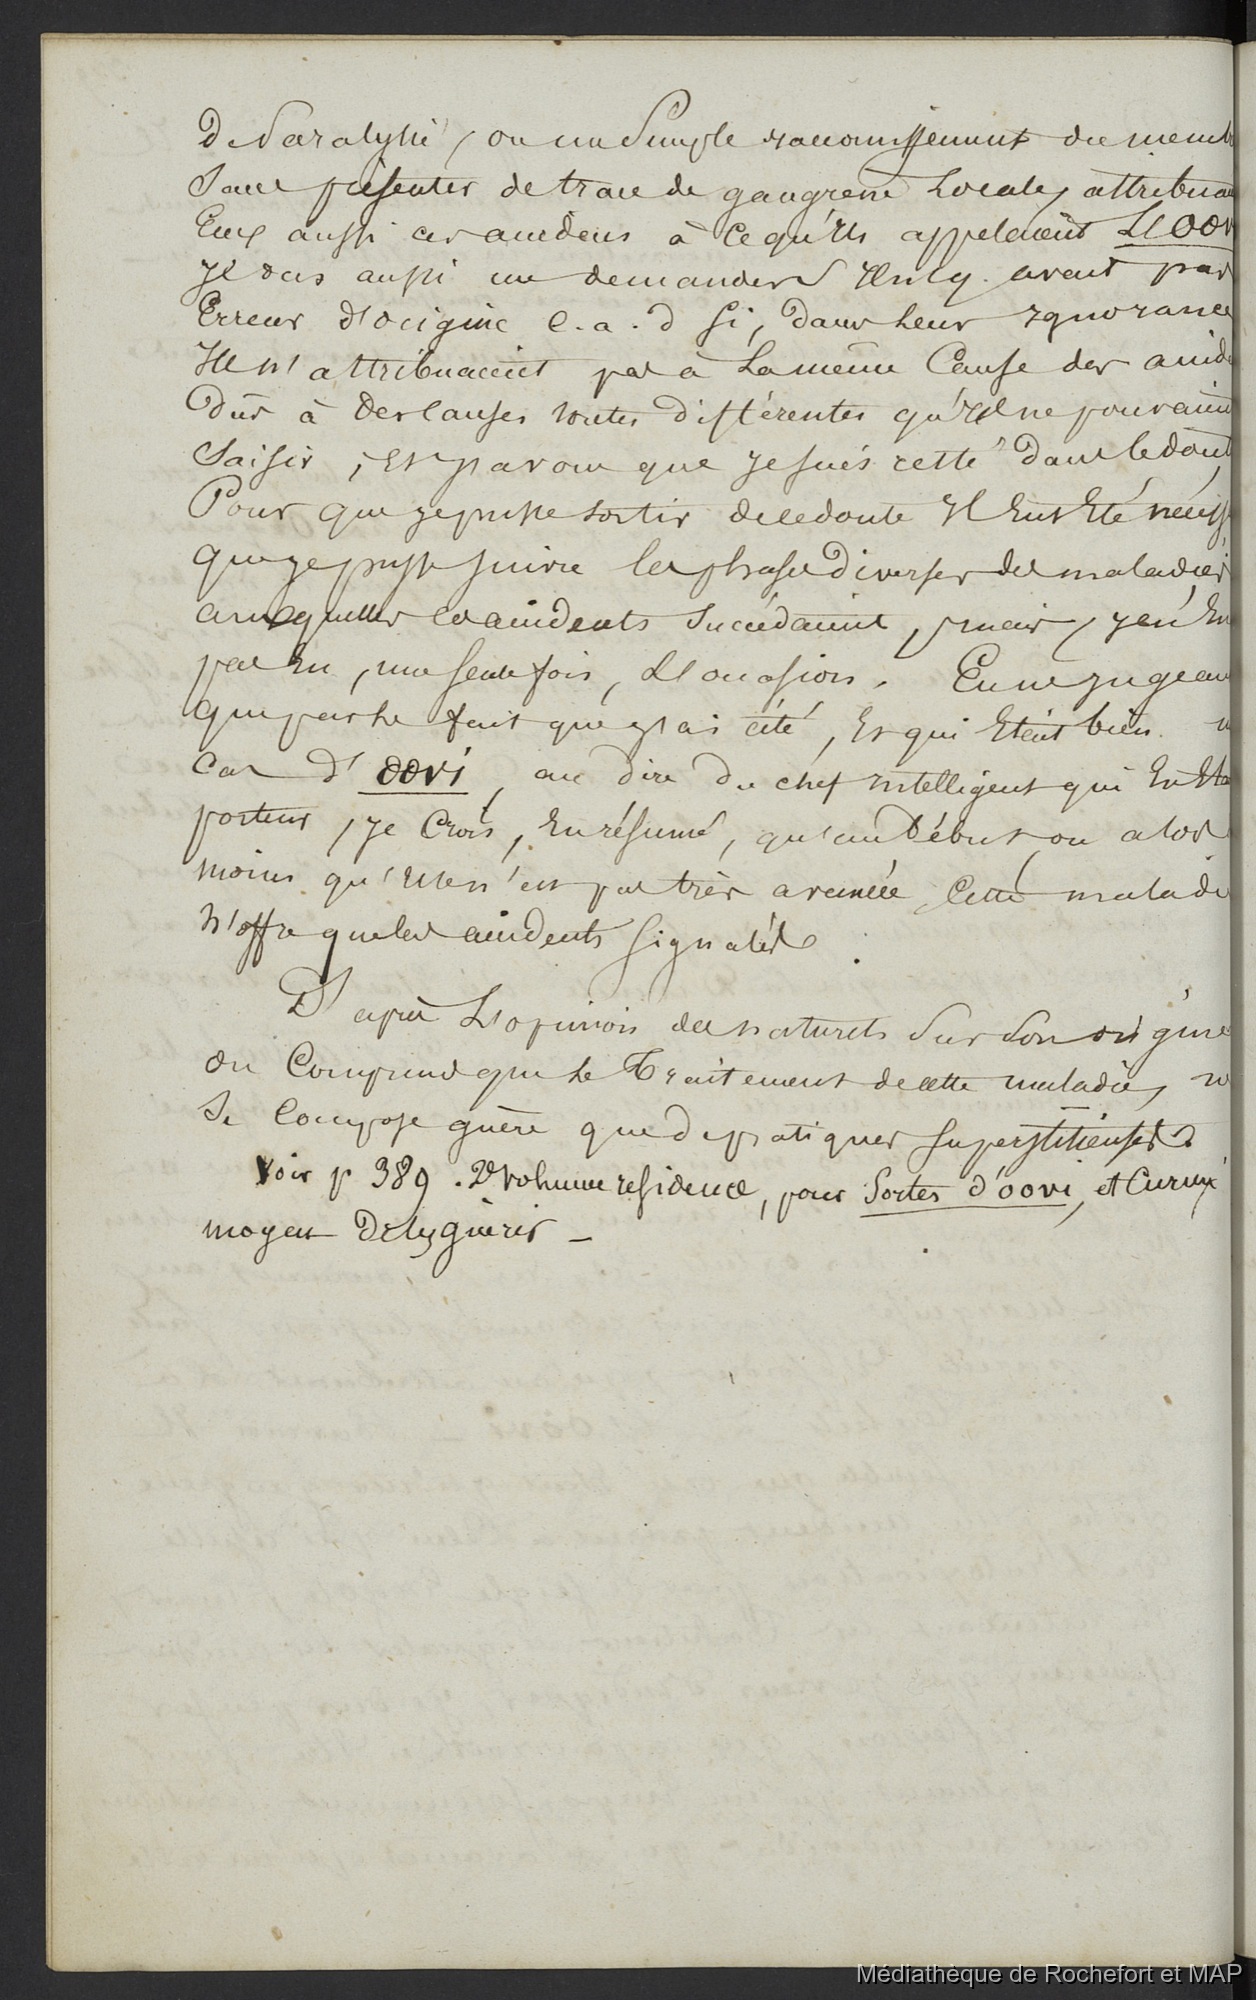 De Paralysie, ou un Simple raccourcissement du memb
Sans présenter de trace de gangrène Locale, attribua
Eux aussi ces accidens à Ce qu'ils appelaient L'OOV
Je dus aussi me demander s'Il n'y avait pas
Erreur d'origine c.a.d Si, dans leur Ignorance
Ils n'attribuaient pas à La même Cause des accid
Dûs à des Causes toutes différentes qu'Ils ne pouvaient
Saisir, Et j'avoue que je suis resté Dans le dout
Pour que je pusse sortir de ce doute Il Eut Eté nécess
que je pusse suivre les phases Diverses des maladies
auxquelles ces accidents Succédaient, mais, je n'En
pas Eu, une seule fois, L'occasion. En ne jugean
que par le fait que j'ai cité, Et qui Etait bien n
Cas d'OOVi, au dire Du chef intelligent qui En Eta
porteur, je Crois, En résumé, qu'au Début ou alor
moins qu'Elle n'est pas très avancée, Cette maladi
N'offre que les accidents signalés.
D'après L'opinion des naturels Sur Son origine
on Comprend que le Traitement de cette maladie, n
Se Compose guère que de pratiques superstitieuses
Voir p 389. 2e volume residence, pour Sortes d'oovi, et
moyen De les guérir _
Médiathèque de Rochefort et MAP